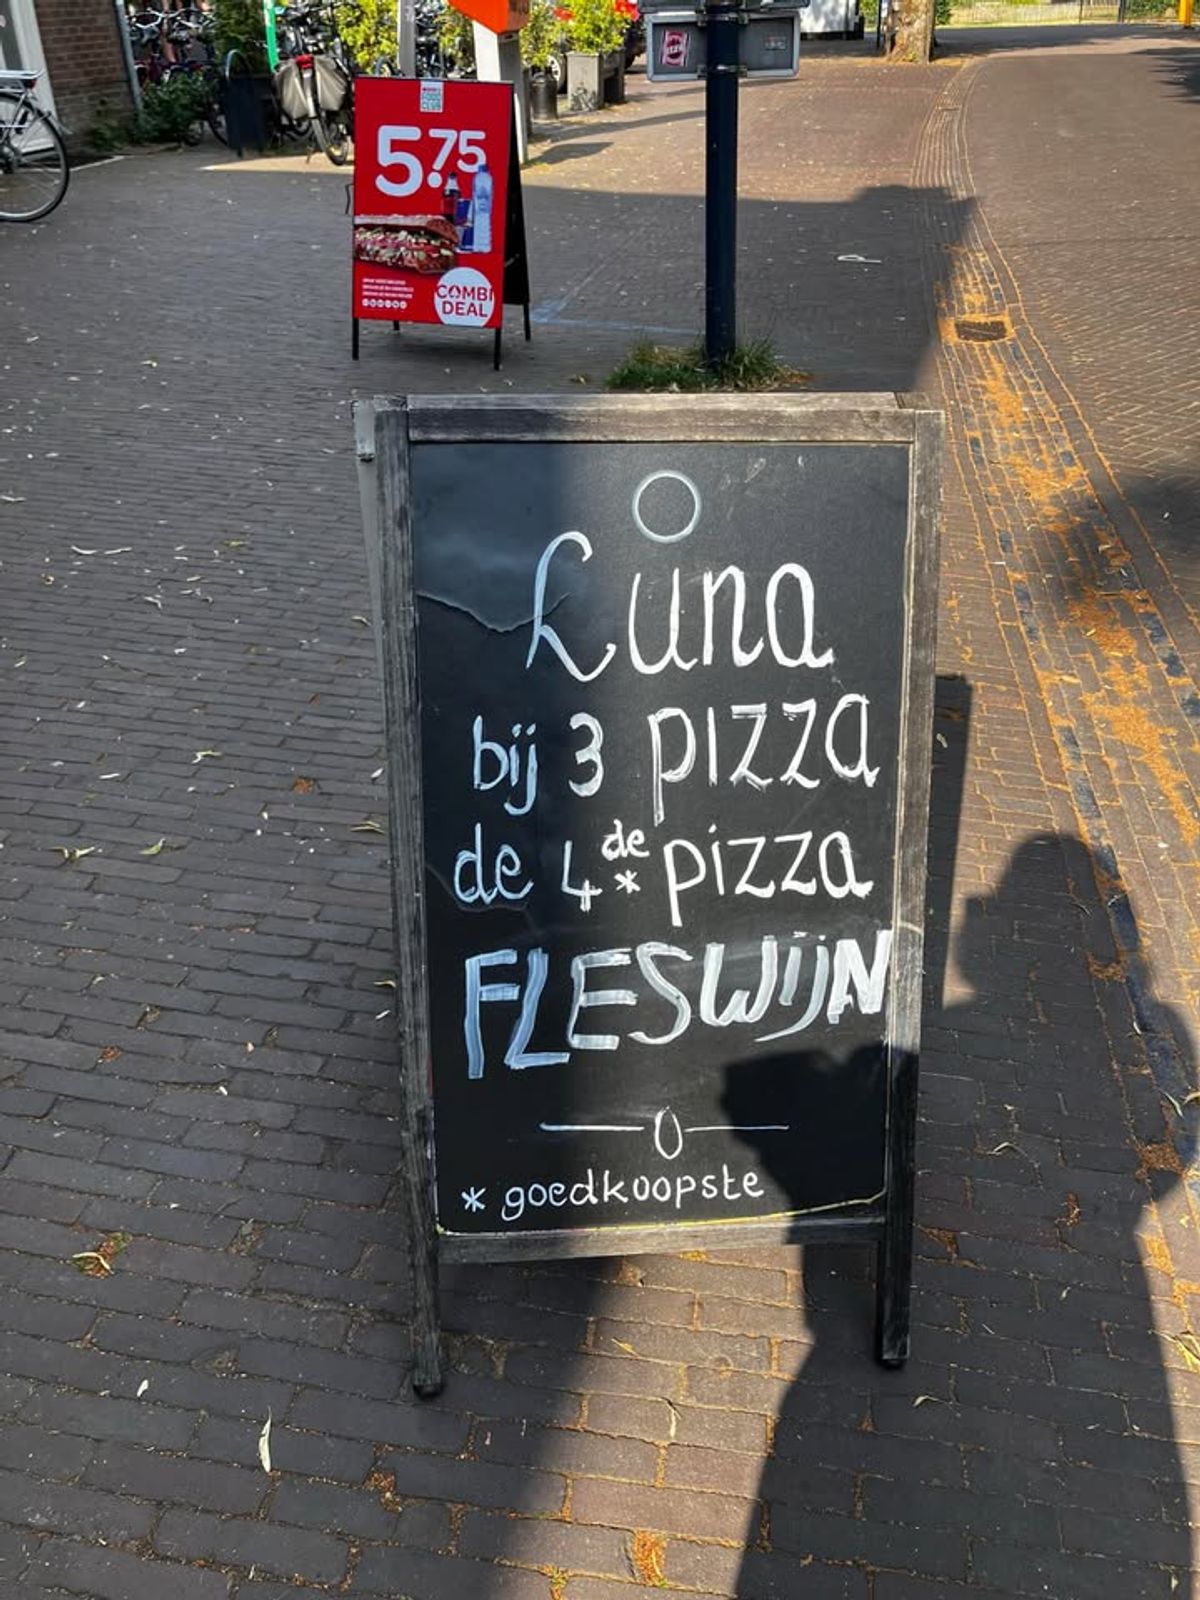 5.75
COMBI
DEAL
Luna
bij 3 pizza
de 4de* pizza
FLESWIJN
* goedkoopste